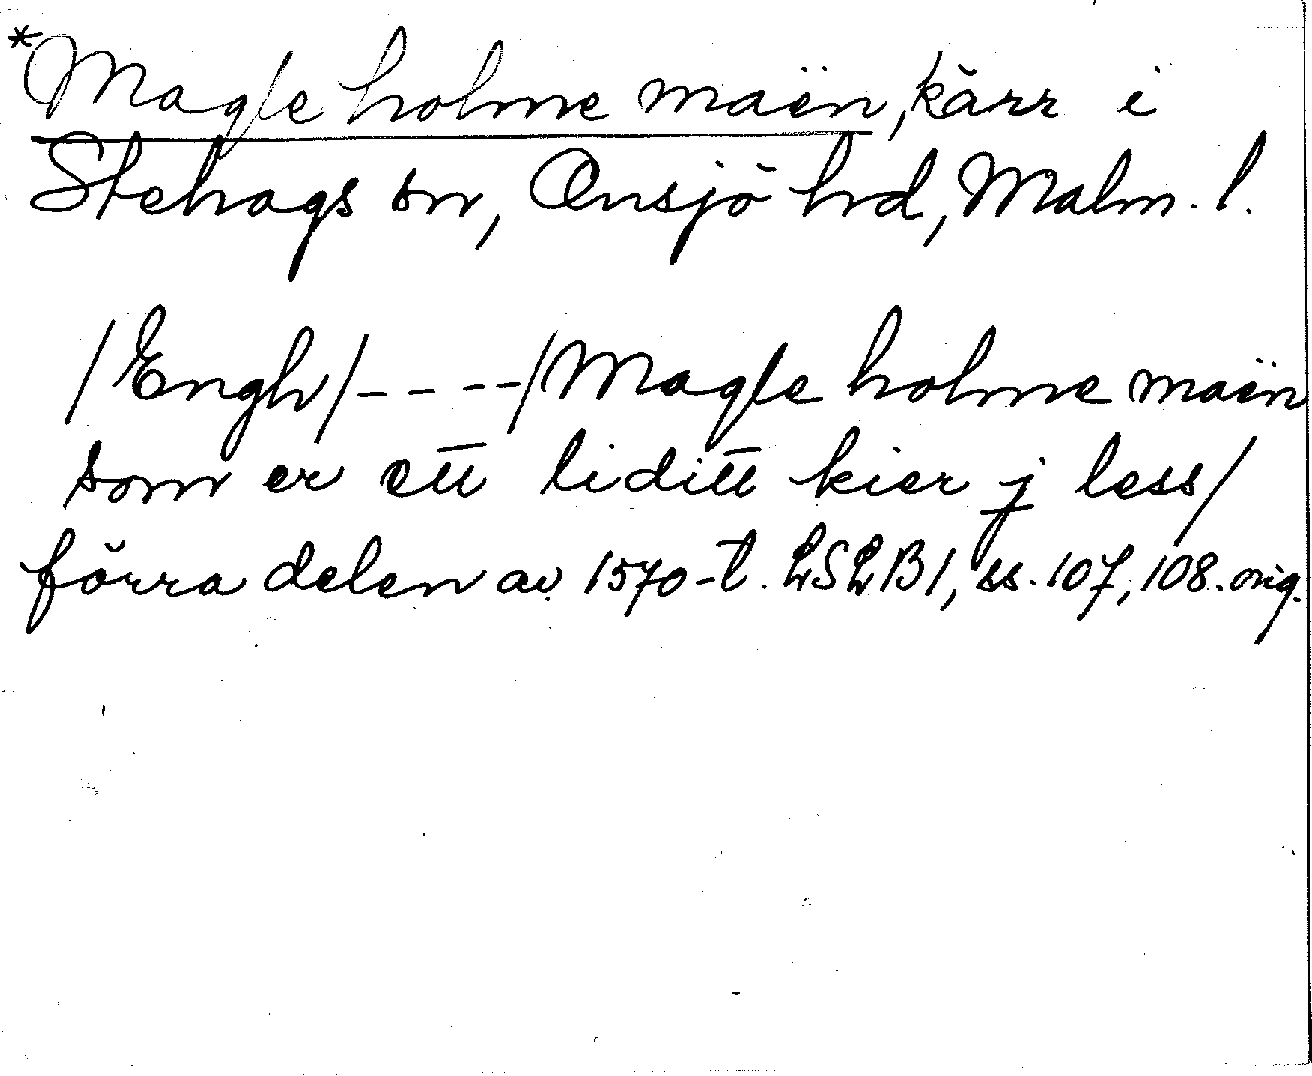 *Magle holme maen, kärr i
Stehags sn, Onsjö hd, Malm. l.
/Engh/- - - -/Magle holme maen
som er ett liditt kier j less/
förra delen av 1570-t. LSLB1, ss. 107, 108. orig.